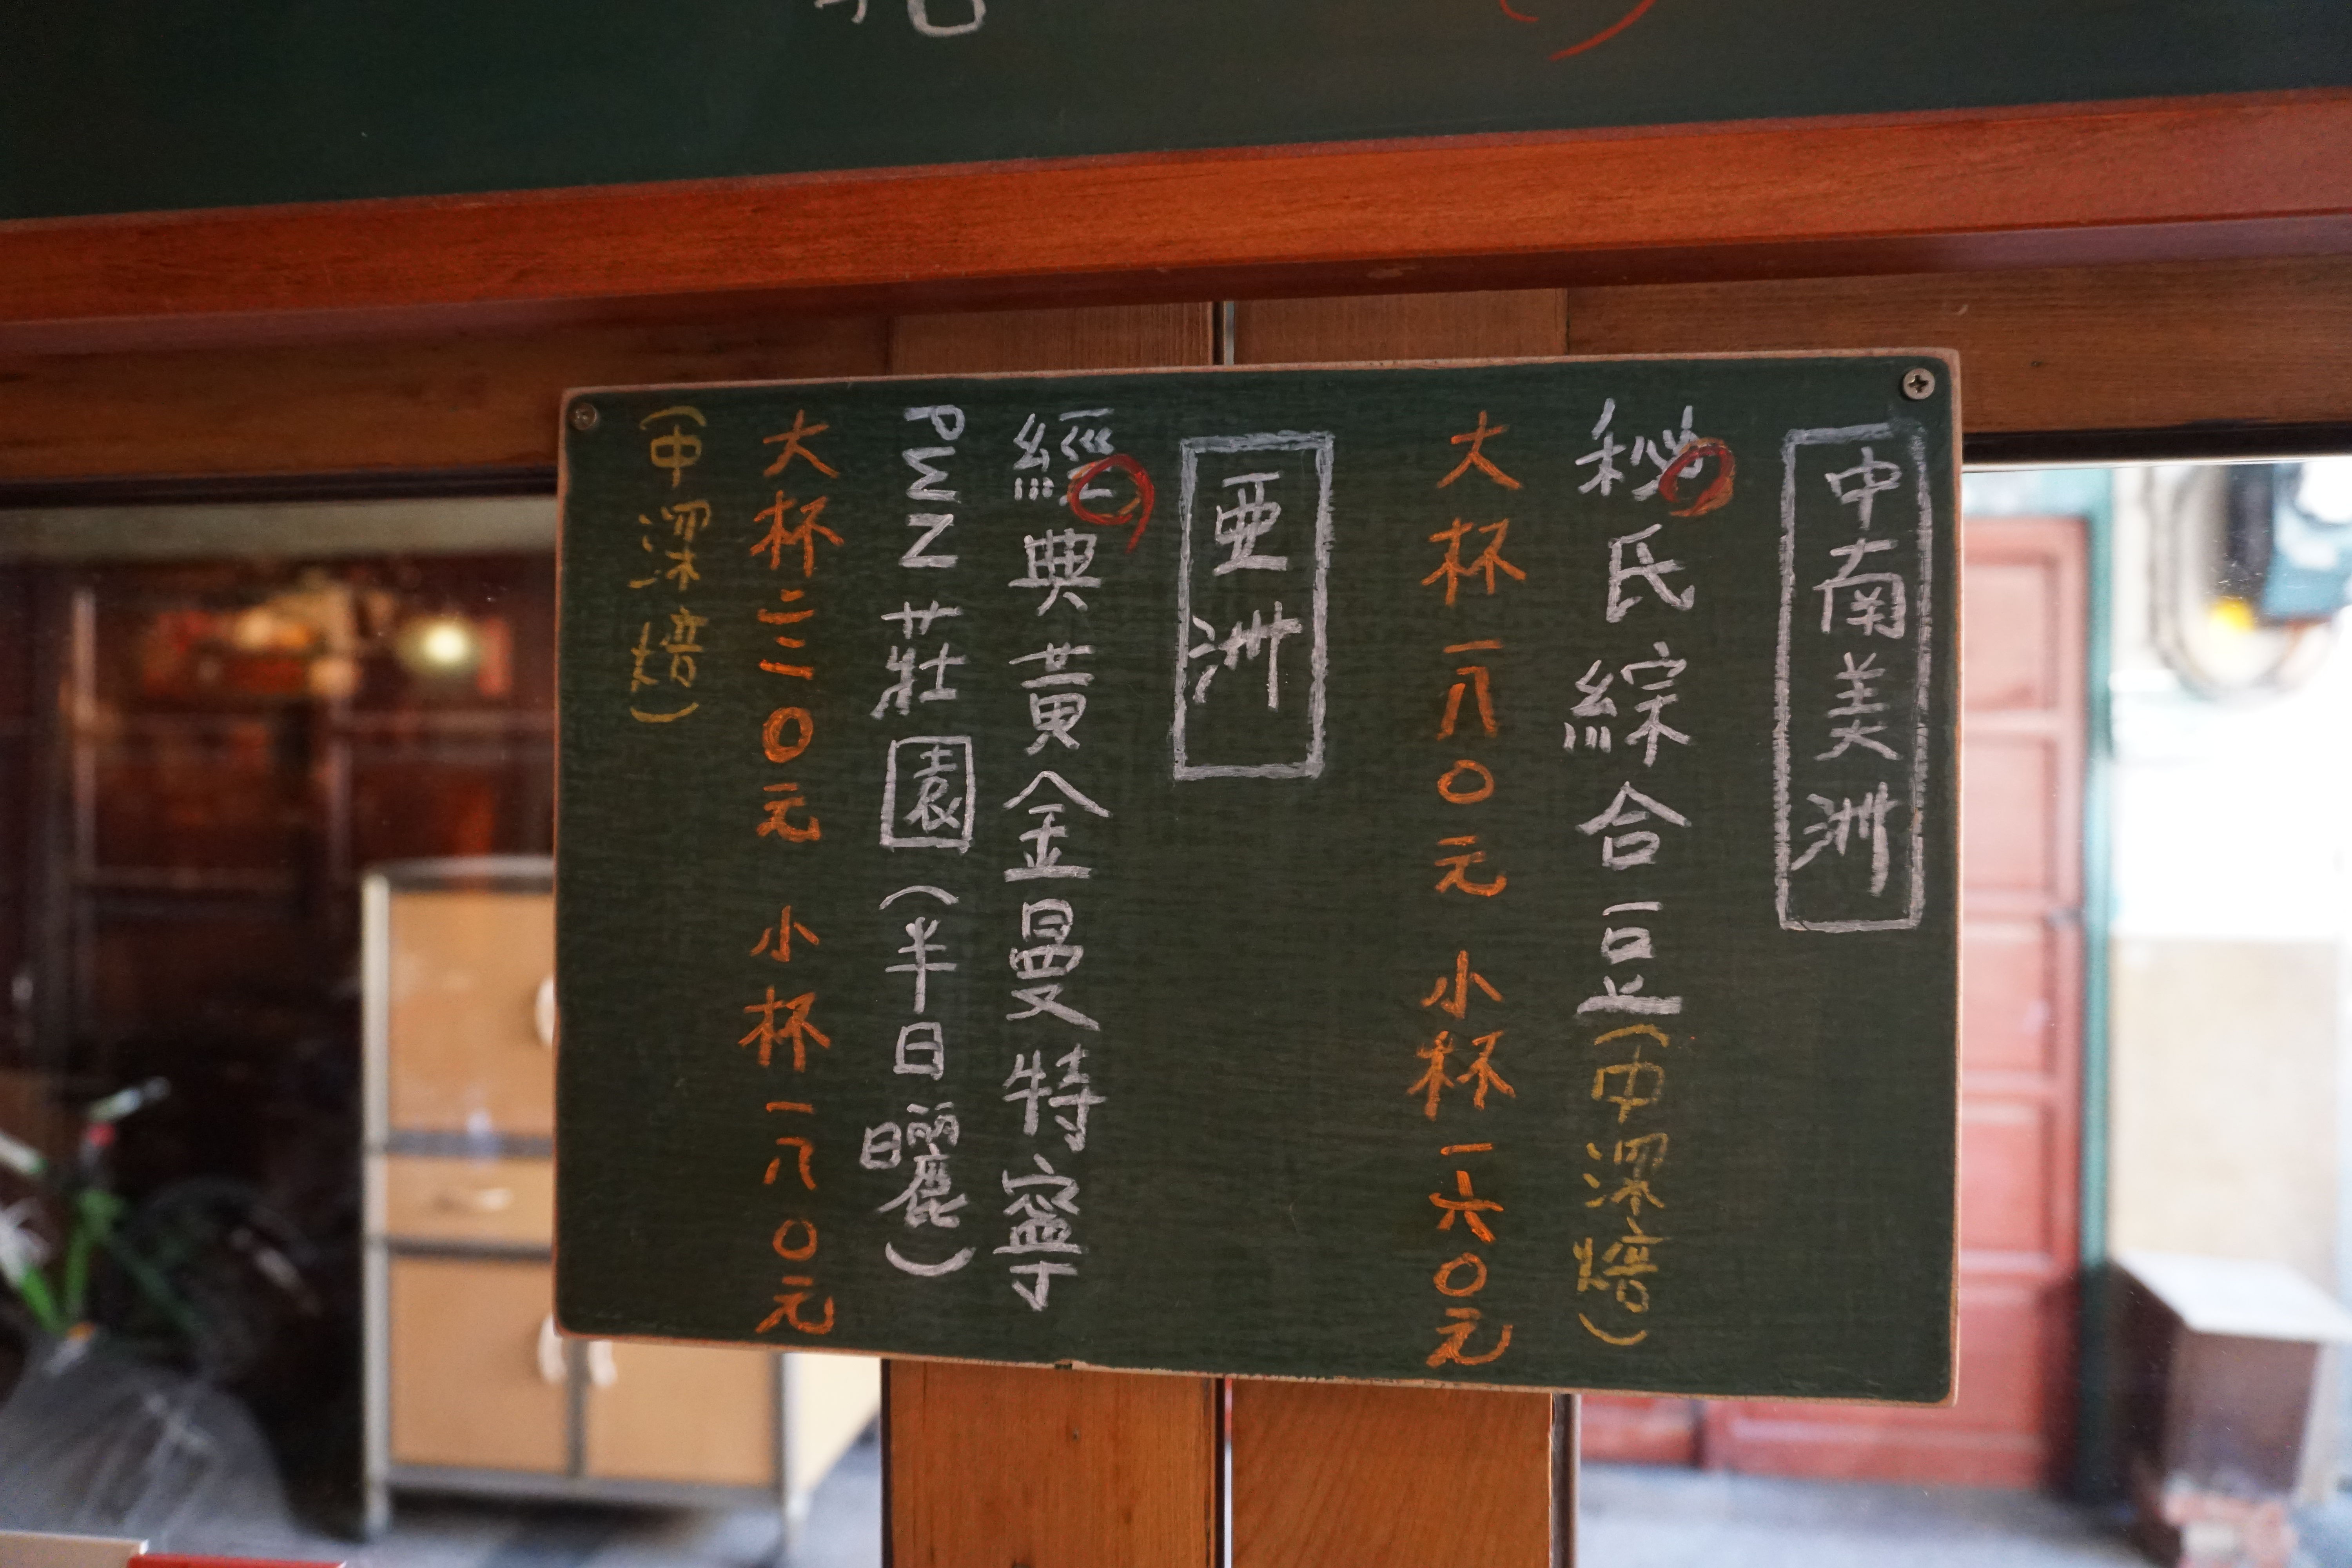 中南美洲
秘氏綜合豆(中深焙)
大杯一八〇元 小杯一六〇元
亞洲
經典黃金曼特寧
PWN莊園(半日曬)
大杯二二〇元 小杯一八〇元
(中深焙)